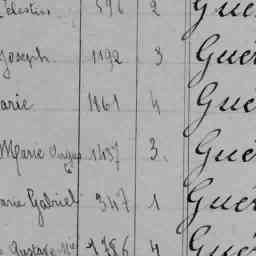 Célestin 596 2 Gué
Joseph 1192 3 Gué
Marie 1861 4 Gué
Marie 1437 3. Gué
Marie Gabriel 347 1 Gué
Gustave 1786 4 Gué